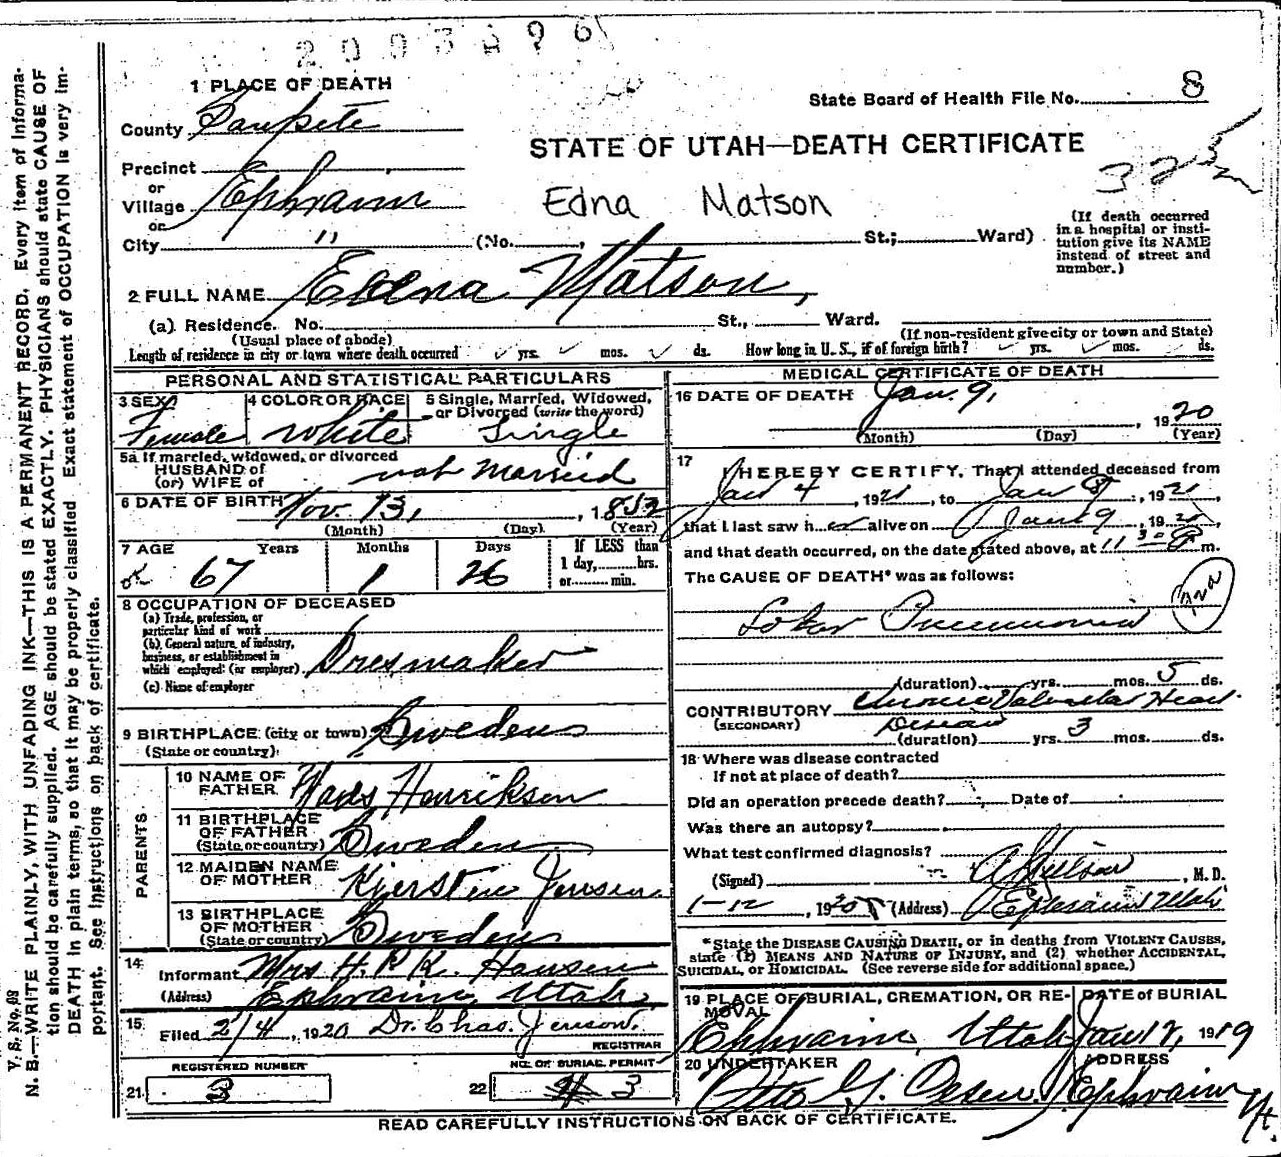 2003896
1 PLACE OF DEATH
State Board of Health File No. 8
County Sanpete
STATE OF UTAH—DEATH CERTIFICATE
Precinct
or
Village Ephraim
or
City "
325
Edna Matson
(No. , St.; Ward)
(If death occurred in a hospital or institution give its NAME instead of street and number.)
2 FULL NAME Edna Matson,
(a) Residence. No. St., Ward.
(Usual place of abode)
(If non-resident give city or town and State)
Length of residence in city or town where death occurred yrs. mos. ds. How long in U. S., if of foreign birth? yrs. mos. ds.
PERSONAL AND STATISTICAL PARTICULARS
3 SEX Female
4 COLOR OR RACE White
5 Single, Married, Widowed, or Divorced (write the word) Single
5a If married, widowed, or divorced
HUSBAND of
(or) WIFE of not Married
6 DATE OF BIRTH Nov. 13, , 1852
(Month) (Day) (Year)
7 AGE Years Months Days If LESS than
1 day, hrs.
or min.
67 1 26
8 OCCUPATION OF DECEASED
(a) Trade, profession, or
particular kind of work
(b) General nature of industry,
business, or establishment in
which employed (or employer) Dressmaker
(c) Name of employer
9 BIRTHPLACE (city or town) Sweden
(State or country)
PARENTS
10 NAME OF
FATHER Hans Henriksen
11 BIRTHPLACE
OF FATHER
(State or country) Sweden
12 MAIDEN NAME
OF MOTHER Kjersten Jensen
13 BIRTHPLACE
OF MOTHER
(State or country) Sweden
14
Informant Mrs H. P. K. Hansen
(Address) Ephraim, Utah,
15
Filed 2/4, 1920 Dr. Chas. Jenson.
REGISTRAR
REGISTERED NUMBER
21 3
NO. OF BURIAL PERMIT
22 4 3
MEDICAL CERTIFICATE OF DEATH
16 DATE OF DEATH Jan. 9,
, 1920
(Month) (Day) (Year)
17
I HEREBY CERTIFY, That I attended deceased from
Jan 4, 1921, to Jan 8, 1921,
that I last saw her alive on Jan 9, 192
and that death occurred, on the date stated above, at 11 30 P m.
The CAUSE OF DEATH* was as follows:
Lobar Pneumonia
(duration) yrs. mos. 5 ds.
CONTRIBUTORY Chronic Valvular Heart
(SECONDARY) Disease
(duration) yrs. 3 mos. ds.
18 Where was disease contracted
If not at place of death?
Did an operation precede death? Date of
Was there an autopsy?
What test confirmed diagnosis?
(Signed) , M. D.
1-12, 1920 (Address) Ephraim Utah
*State the DISEASE CAUSING DEATH, or in deaths from VIOLENT CAUSES,
state (1) MEANS AND NATURE OF INJURY, and (2) whether ACCIDENTAL,
SUICIDAL, OR HOMICIDAL. (See reverse side for additional space.)
19 PLACE OF BURIAL, CREMATION, OR REMOVAL
Ephraim, Utah
DATE of BURIAL
Jan 12, 1919
20 UNDERTAKER
Otto G. Olsen.
ADDRESS
Ephraim Ut.
READ CAREFULLY INSTRUCTIONS ON BACK OF CERTIFICATE.
V. S. No. 98
N. B.—WRITE PLAINLY, WITH UNFADING INK—THIS IS A PERMANENT RECORD. Every item of information should be carefully supplied. AGE should be stated EXACTLY. PHYSICIANS should state CAUSE OF DEATH in plain terms, so that it may be properly classified. Exact statement of OCCUPATION is very important. See instructions on back of certificate.